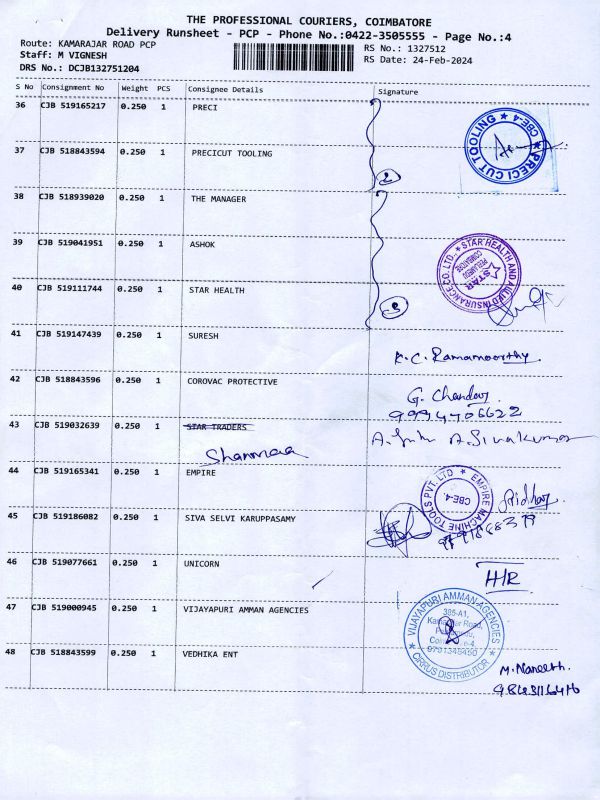 THE PROFESSIONAL COURIERS, COIMBATORE
Delivery Runsheet - PCP - Phone No.:0422-3505555 - Page No.:4
Route: KAMARAJAR ROAD PCP
RS No.: 1327512
Staff: M VIGNESH
RS Date: 24-Feb-2024
DRS No.: DCJB132751204
S No Consignment No Weight PCS Consignee Details Signature
36 CJB 519165217 0.250 1 PRECI
37 CJB 518843594 0.250 1 PRECICUT TOOLING
PRECI CUT TOOLING ★ CBE-4 ★
2
38 CJB 518939020 0.250 1 THE MANAGER
39 CJB 519041951 0.250 1 ASHOK
STAR HEALTH AND ALLIED INSURANCE CO. LTD. ★
STAR
COIMBATORE
40 CJB 519111744 0.250 1 STAR HEALTH
3
41 CJB 519147439 0.250 1 SURESH
K.C. Ramamoorthy.
42 CJB 518843596 0.250 1 COROVAC PROTECTIVE
G. Chandar
9994706622
43 CJB 519032639 0.250 1 STAR TRADERS
A. Sivakumar
44 CJB 519165341 0.250 1 EMPIRE
★ EMPIRE MACHINE TOOLS PVT. LTD
CBE-4.
Sridhar.
45 CJB 519186082 0.250 1 SIVA SELVI KARUPPASAMY
46 CJB 519077661 0.250 1 UNICORN
H/R
47 CJB 519000945 0.250 1 VIJAYAPURI AMMAN AGENCIES
VIJAYAPURI AMMAN AGENCIES
385-A1,
Kamarajar Road,
★ CIRRUS DISTRIBUTOR ★
48 CJB 518843599 0.250 1 VEDHIKA ENT